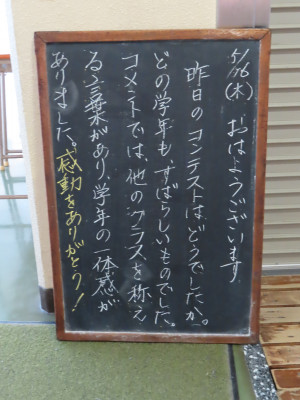 5/16(木) おはようございます
昨日のコンテストは、どうでしたか。
どの学年も、すばらしいものでした。
コメントでは、他のクラスを称え
る言葉があり、学年の一体感が
ありました。感動をありがとう!